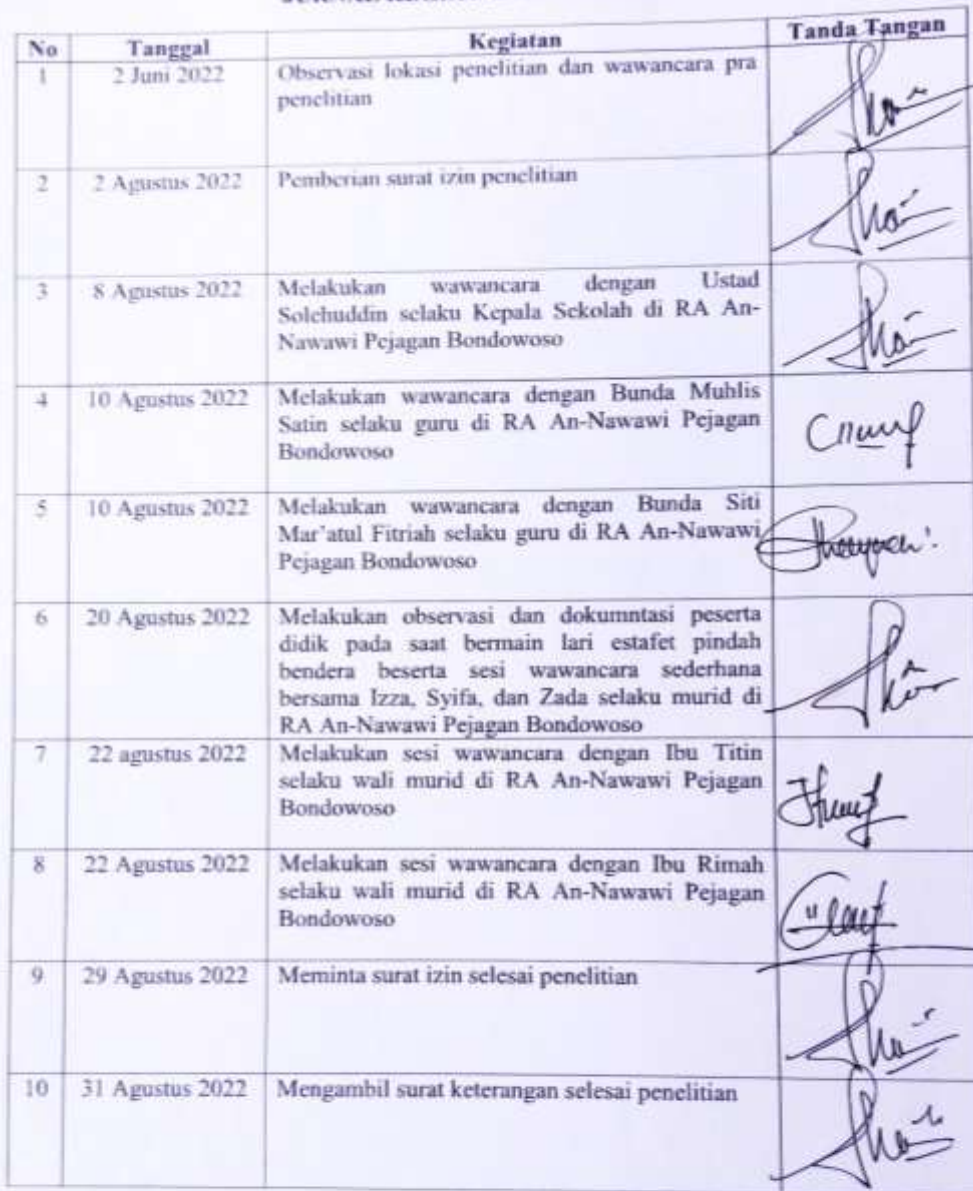 No Tanggal Kegiatan Tanda Tangan
1 2 Juni 2022 Observasi lokasi penelitian dan wawancara pra
penelitian
2 2 Agustus 2022 Pemberian surat izin penelitian
3 8 Agustus 2022 Melakukan wawancara dengan Ustad
Solehuddin selaku Kepala Sekolah di RA An-
Nawawi Pejagan Bondowoso
4 10 Agustus 2022 Melakukan wawancara dengan Bunda Muhlis
Satin selaku guru di RA An-Nawawi Pejagan
Bondowoso
5 10 Agustus 2022 Melakukan wawancara dengan Bunda Siti
Mar'atul Fitriah selaku guru di RA An-Nawawi
Pejagan Bondowoso
6 20 Agustus 2022 Melakukan observasi dan dokumntasi peserta
didik pada saat bermain lari estafet pindah
bendera beserta sesi wawancara sederhana
bersama Izza, Syifa, dan Zada selaku murid di
RA An-Nawawi Pejagan Bondowoso
7 22 agustus 2022 Melakukan sesi wawancara dengan Ibu Titin
selaku wali murid di RA An-Nawawi Pejagan
Bondowoso
8 22 Agustus 2022 Melakukan sesi wawancara dengan Ibu Rimah
selaku wali murid di RA An-Nawawi Pejagan
Bondowoso
9 29 Agustus 2022 Meminta surat izin selesai penelitian
10 31 Agustus 2022 Mengambil surat keterangan selesai penelitian